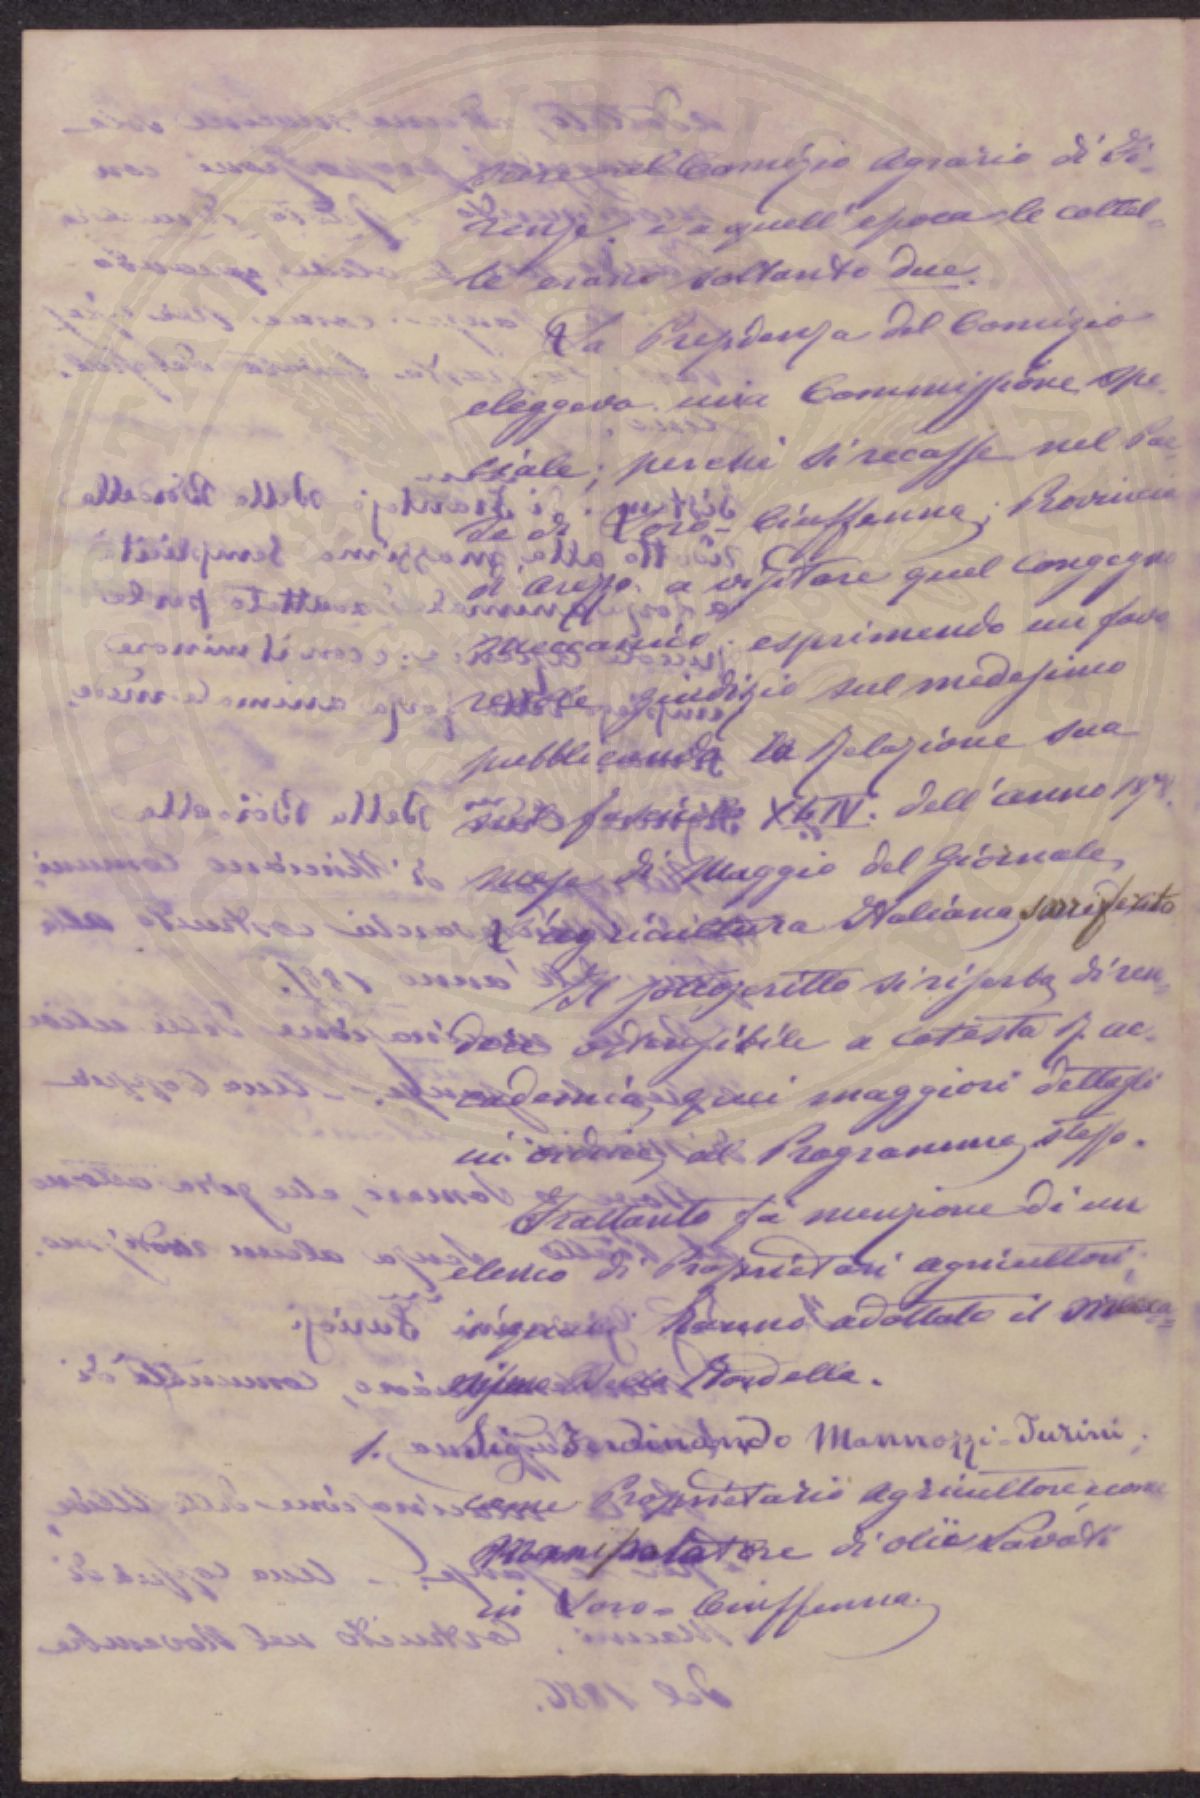 nel Comizio Agrario di Fi-
renze. e a quell'epoca le coltel-
le erano soltanto due.
La Presidenza del Comizio
eleggeva una Commissione spe-
ciale; perché si recasse nel Pae
se di Loro-Ciuffenna, Provincia
di Arezzo. a visitare quel congegno
meccanico. esprimendo un favo
revole giudizio sul medesimo
pubblicando la Relazione sua
nel fascicolo XLIV. dell'anno
mese di Maggio del Giornale
l'agricultura Italiana surriferito
Il sottoscritto si riserba di ren-
dere ostensibile a cotesta R. ac-
cademia, quei maggiori dettagli
in ordine al Programma stesso.
Frattanto fa menzione di un
elenco di Proprietari agricultori,
i quali hanno adottato il mecca-
nismo della Bordella.
1. Ferdinando Mannozzi-Turini,
come Proprietario agricultore, e come
manipolatore di olii lavati
in Loro-Ciuffenna.